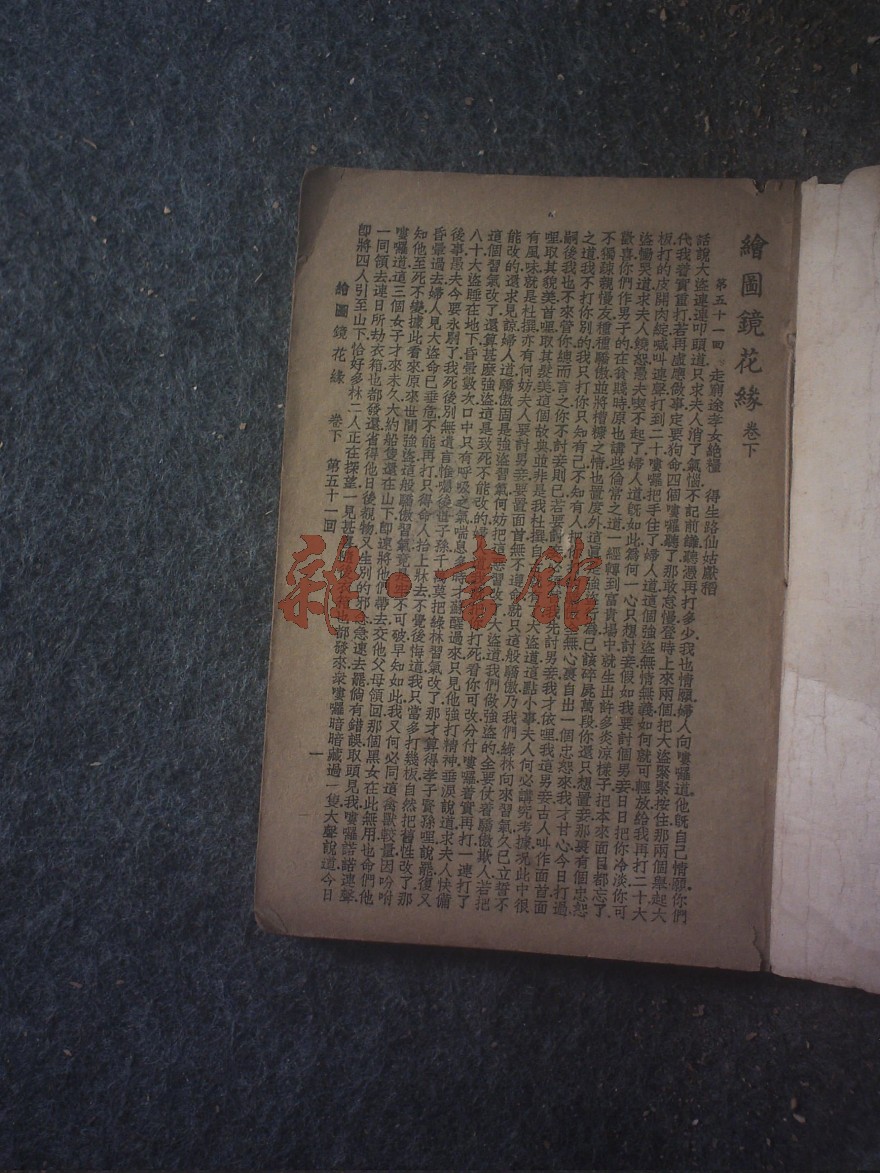 繪圖鏡花緣 卷下
第五十一回 走窮途孝女絶糧 得生路仙姑獻稻
話說大盜連連叩頭道只求夫人消了氣惱不記前讎聽憑再打多少我也情願婦人向嘍囉道他既自己情願你們
代我着實重打若再虛應故事定要狗命四個嘍囉聽了那敢怠慢登時上來兩個把大盜緊緊按住那兩個舉起大
板打的皮開肉綻喊叫連聲打到二十嘍囉把手住了婦人道這個強盜無情無義如何就可輕放給我再打二十大
盜慟哭道求夫人饒恕愚夫喫不起了婦人道既如此爲何一心只想討妾假如我要討個男妾日日把你冷淡你可
歡喜你們作男子的在貧賤時原也講些倫常之道一經轉到富貴場中就生出許多炎涼樣子把本來面目都忘了
不獨疎親慢友種種驕傲並將糟糠之情也置度外這真是強盜行爲已該碎屍萬段你還只想置妾那裏有個忠恕
之道我不打你別的我只打你只知有己不知有人把你
無心裏自出一個忠恕來我才甘心今日打過
嗣後我也不來管你總而言之你不討妾則已若要討妾
我先討男妾我才依哩我這男妾古人叫作面首面
哩取其貌美首哩取其髮美這個故典並非是我杜撰自
了大盜道這點小事夫人何必講究考據況此中很
有風味就是杜撰亦有何妨夫人要討男妾要置面首無不遵命就只這般驕傲乃我們綠林向來習氣久已立誓不
能改的還求見諒婦人道驕傲固是強盜習氣何妨把這惡習改了大盜道我們做強盜的全要仗着驕傲欺人若把
這個習氣改了還算甚麽強盜這是致死不能改的婦
打死看你可改分付嘍囉着實再打一連打了
八十大盜睡在地下昏暈數次口中只有呼吸之氣喘息
時才蘇醒過來只見他強打精神垂淚說道求夫人快備
後事愚夫今要永別了我死後別無遺言惟囑後世子孫千
莫把綠林習氣改了那才算得孝子賢孫哩說罷復又
昏暈過去婦人見大盜命已垂危不能再打只得命人抬上牀去不覺後悔道我只當多打幾板自然把舊性改了那
知他至死不變據此看來原來世間強盜這般驕傲習氣竟
不可破早知如此我又何必同這禽獸較量因吩咐
嘍囉道這三個女子才來未久大約船隻還在山下即速將他們帶去交他父母領回那個黑女在此無用也命們他
一同領去連日所劫衣箱也都發還省得他日後覩物又生別的邪念急速去罷倘有錯誤取頭見我嘍囉諾諾連聲
卽將四人引至山下恰好多林二人正在探望一見甚
都發來衆嘍囉暗暗藏過一隻大聲說道今日
繪圖鏡花緣 卷下 第五十一回 一
雜·書館